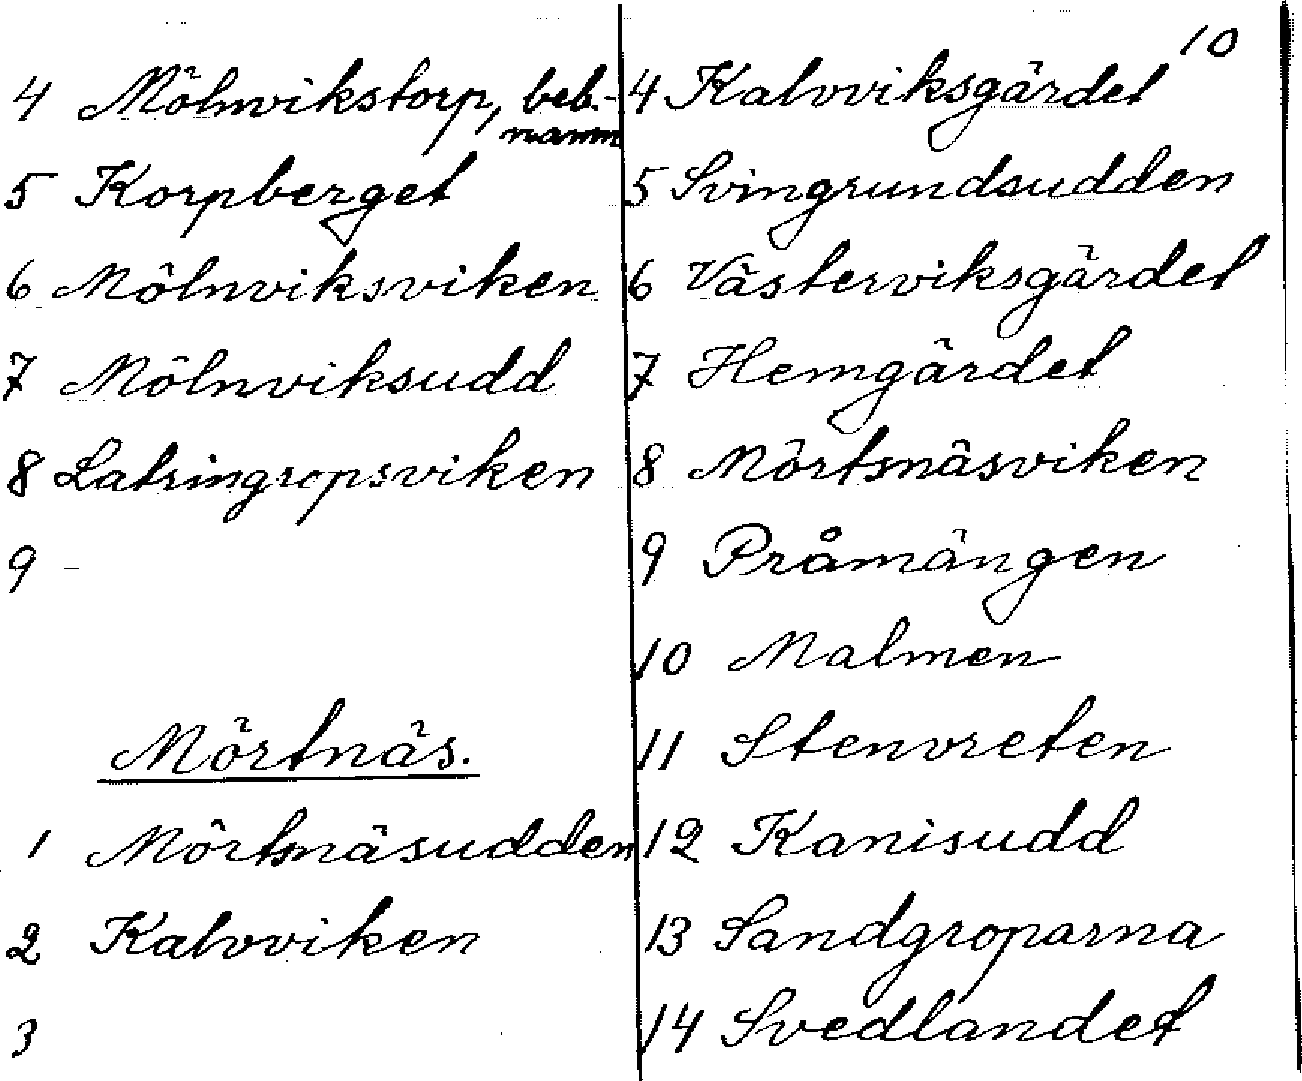 4 Mölnvikstorp, beb.-
namn
5 Korpberget
6 Mölnviksviken
7 Mölnviksudd
8 Latringropsviken
9 -
Mörtnäs.
1 Mörtsnäsudden
2 Kalvviken
3
10
4 Kalvviksgärdet
5 Svingrundsudden
6 Västerviksgärdet
7 Hemgärdet
8 Mörtsnäsviken
9 Pråmängen
10 Malmen
11 Stenvreten
12 Kanisudd
13 Sandgroparna
14 Svedlandet